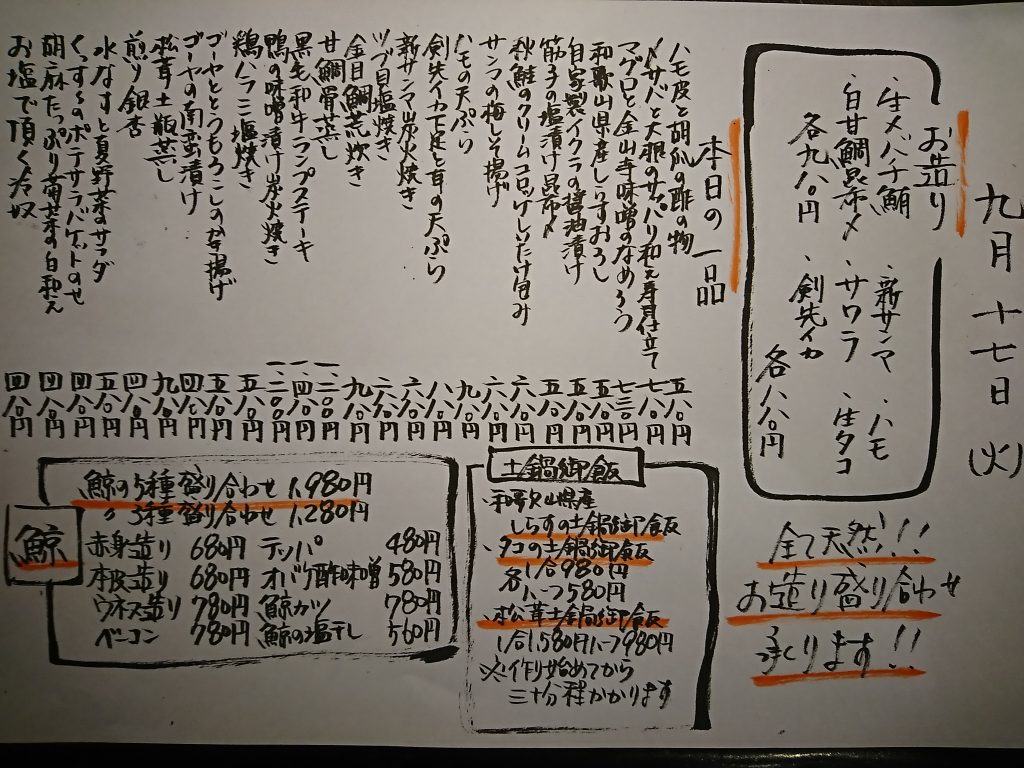 九月十七日(火)
お造り
・生メバチ鮪 ・新サンマ ・ハモ
・白甘鯛昆布〆 ・サワラ ・生タコ
各九八〇円 ・剣先イカ 各八八〇円
全て天然!!
お造り盛り合わせ
承ります!!
本日の一品
ハモ皮と胡瓜の酢の物 五八〇円
〆サバと大根のサッパリ和え寿司仕立て 七八〇円
マグロと金山寺味噌のなめろう 七三〇円
和歌山県産しらすおろし 五八〇円
自家製イクラの醤油漬け 五八〇円
筋子の塩漬け昆布〆 五八〇円
秋鮭のクリームコロッケしいたけ包み 六八〇円
サンマの梅しそ揚げ 六八〇円
ハモの天ぷら 九八〇円
剣先イカ下足と茸の天ぷら 八八〇円
新サンマ炭火焼き 六八〇円
ツブ貝塩焼き 六八〇円
金目鯛荒炊き 九八〇円
甘鯛骨蒸し 一、二八〇円
黒毛和牛ランプステーキ 一、四八〇円
鴨の味噌漬け炭火焼き 一、二八〇円
鶏ハラミ塩焼き 五八〇円
ゴーヤととうもろこしのかき揚げ 五八〇円
ゴーヤの南蛮漬け 四八〇円
松茸土瓶蒸し 九八〇円
煎り銀杏 四八〇円
水なすと夏野菜のサラダ 五八〇円
くんたまのポテサラバゲットのせ 四八〇円
胡麻たっぷり菊菜の白和え 四八〇円
お塩で頂く冷奴 四八〇円
土鍋御飯
・和歌山県産
しらすの土鍋御飯
・タコの土鍋御飯
各 1合980円
ハーフ580円
・松茸土鍋御飯
1合1,580円ハーフ980円
※作り始めてから
三十分程かかります
鯨
鯨の5種盛り合わせ 1,980円
〃 3種盛り合わせ 1,280円
赤身造り 680円 テッパ 480円
本皮造り 680円 オバケ酢味噌 580円
ウネス造り 780円 鯨カツ 780円
ベーコン 780円 鯨の塩干し 560円